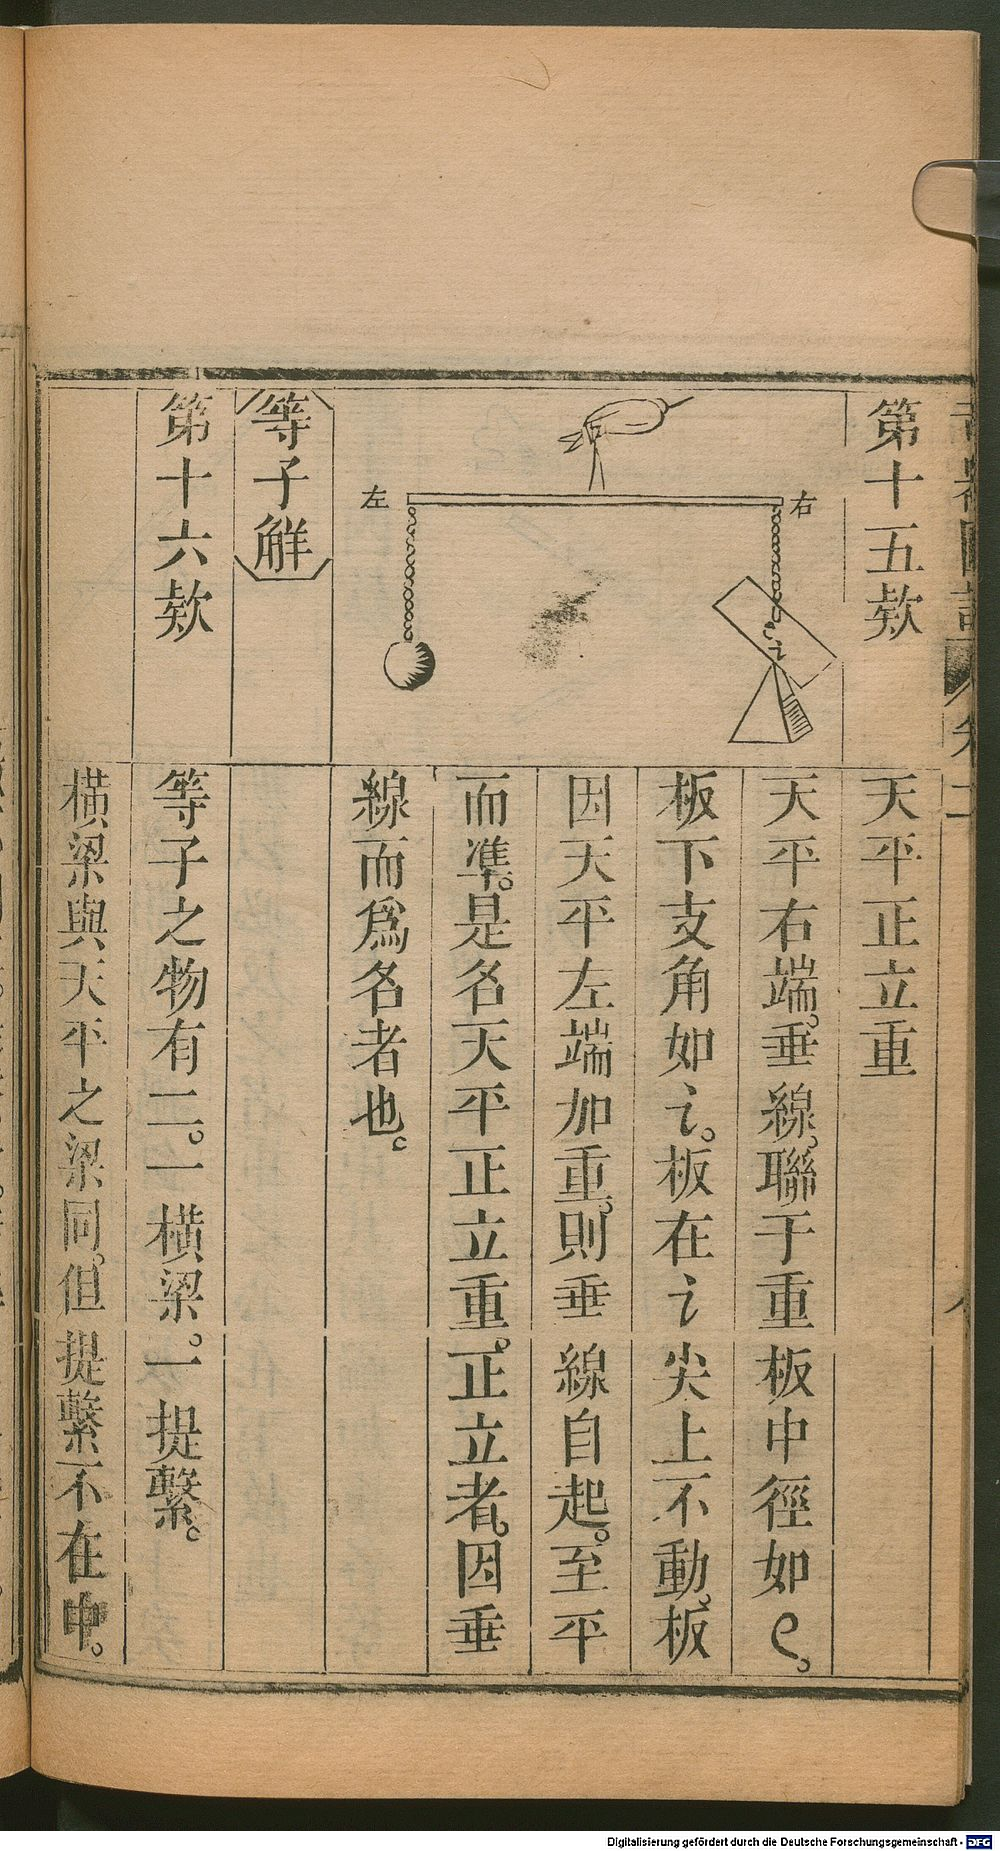 第十五欵
天平正立重
天平右端。垂線。聯于重板中徑如ㄟ。
板下支角如讠。板在讠尖上不動。板
因天平左端加重。則垂線自起。至平
而準。是名天平正立重。正立者。因垂
線而爲名者也。
右
左
讠
等子觧
第十六欵
等子之物有二。一橫梁。一提繫。
橫梁與天平之梁同。但提繫不在中。
Digitalisierung gefördert durch die Deutsche Forschungsgemeinschaft - DFG